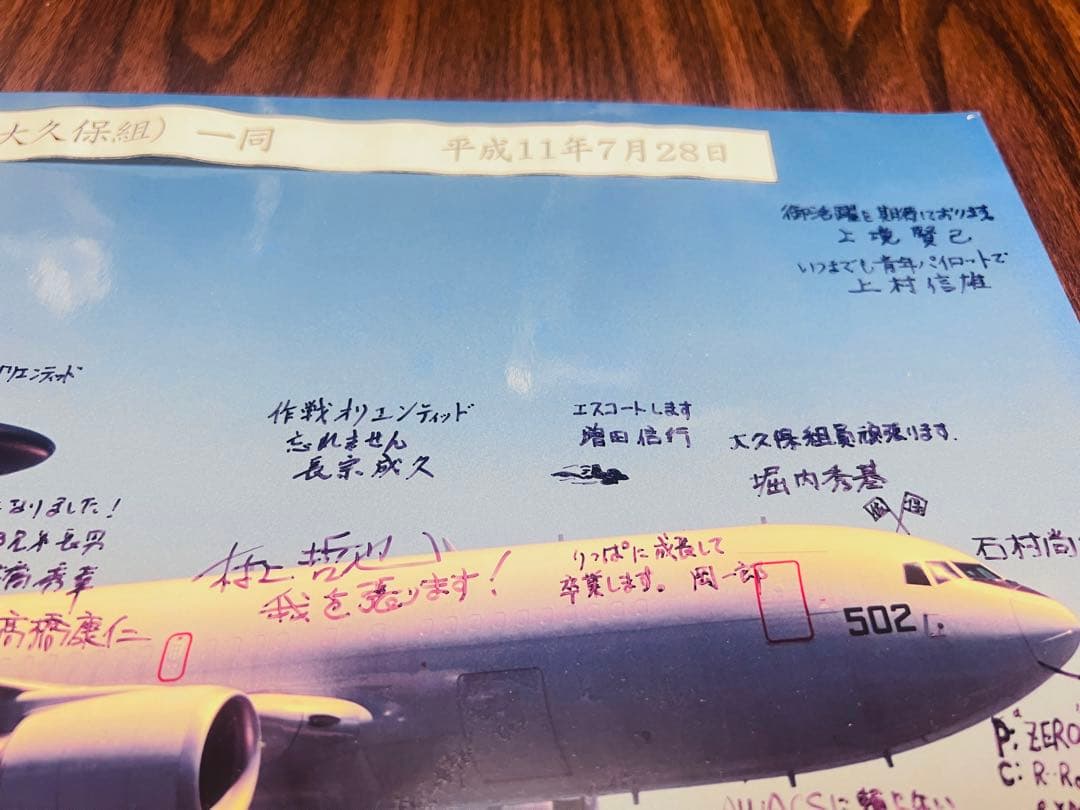 大久保組) 一同 平成11年7月28日
御活躍を期待しております
上境賢己
いつまでも青年パイロットで
上村信雄
リエンティッド
作戦オリエンティッド
忘れません
長宗成久
エスコートします
増田信行
大久保組員頑張ります.
堀内秀基
なりました!
長男
高橋康仁
村上哲也
我を張ります!
りっぱに成長して
卒業します。 岡一郎
石村尚
502
P: ZERO
C: R-R
AWACSに